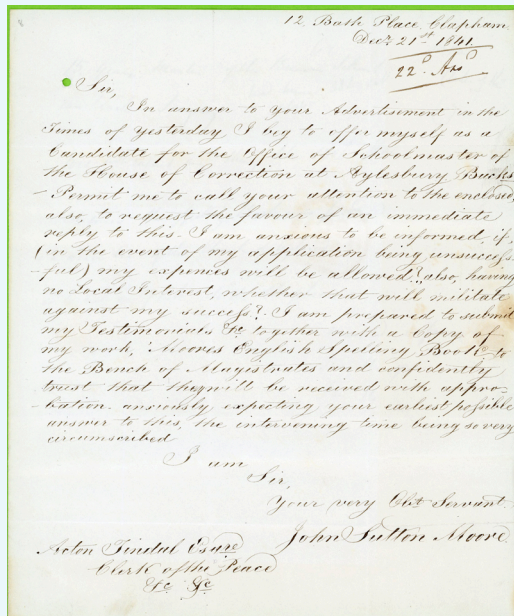 12 Bath Place, Clapham
Decr 21st 1841.
22d Ansd
Sir,
In answer to your Advertisement in the
Times of yesterday, I beg to offer myself as a
Candidate for the Office of Schoolmaster of
the House of Correction at Aylesbury Bucks
- Permit me to call your attention to the enclosed,
also, to request the favour of an immediate
reply to this. I am anxious to be informed, if,
(in the event of my application being unsuccess
-ful) my expences will be allowed? also, having
no Local Interest, whether that will militate
against my success? I am prepared to submit
my Testimonials &c together with a Copy of
my work, "Moores English Spelling Book" to
the Bench of Magistrates and confidently
trust that they will be received with appro-
-bation. anxiously expecting your earliest possible
answer to this, the intervening time being so very
circumscribed
I am
Sir,
Your very Obt Servant.
John Sutton Moore
Acton Tindal Esqre
Clerk of the Peace
&c &c